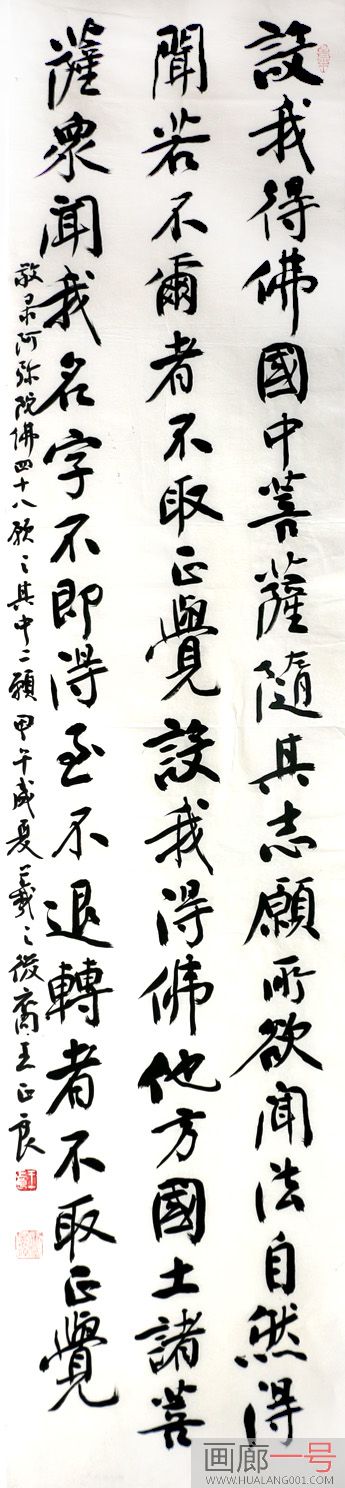 設我得佛國中菩薩隨其志願所欲聞法自然得
聞若不爾者不取正覺設我得佛他方國土諸菩
薩眾聞我名字不即得至不退轉者不取正覺
敬录阿弥陀佛四十八願之其中二願甲午盛夏羲之後裔王正良
画廊一号
WWW.HUALANG001.COM